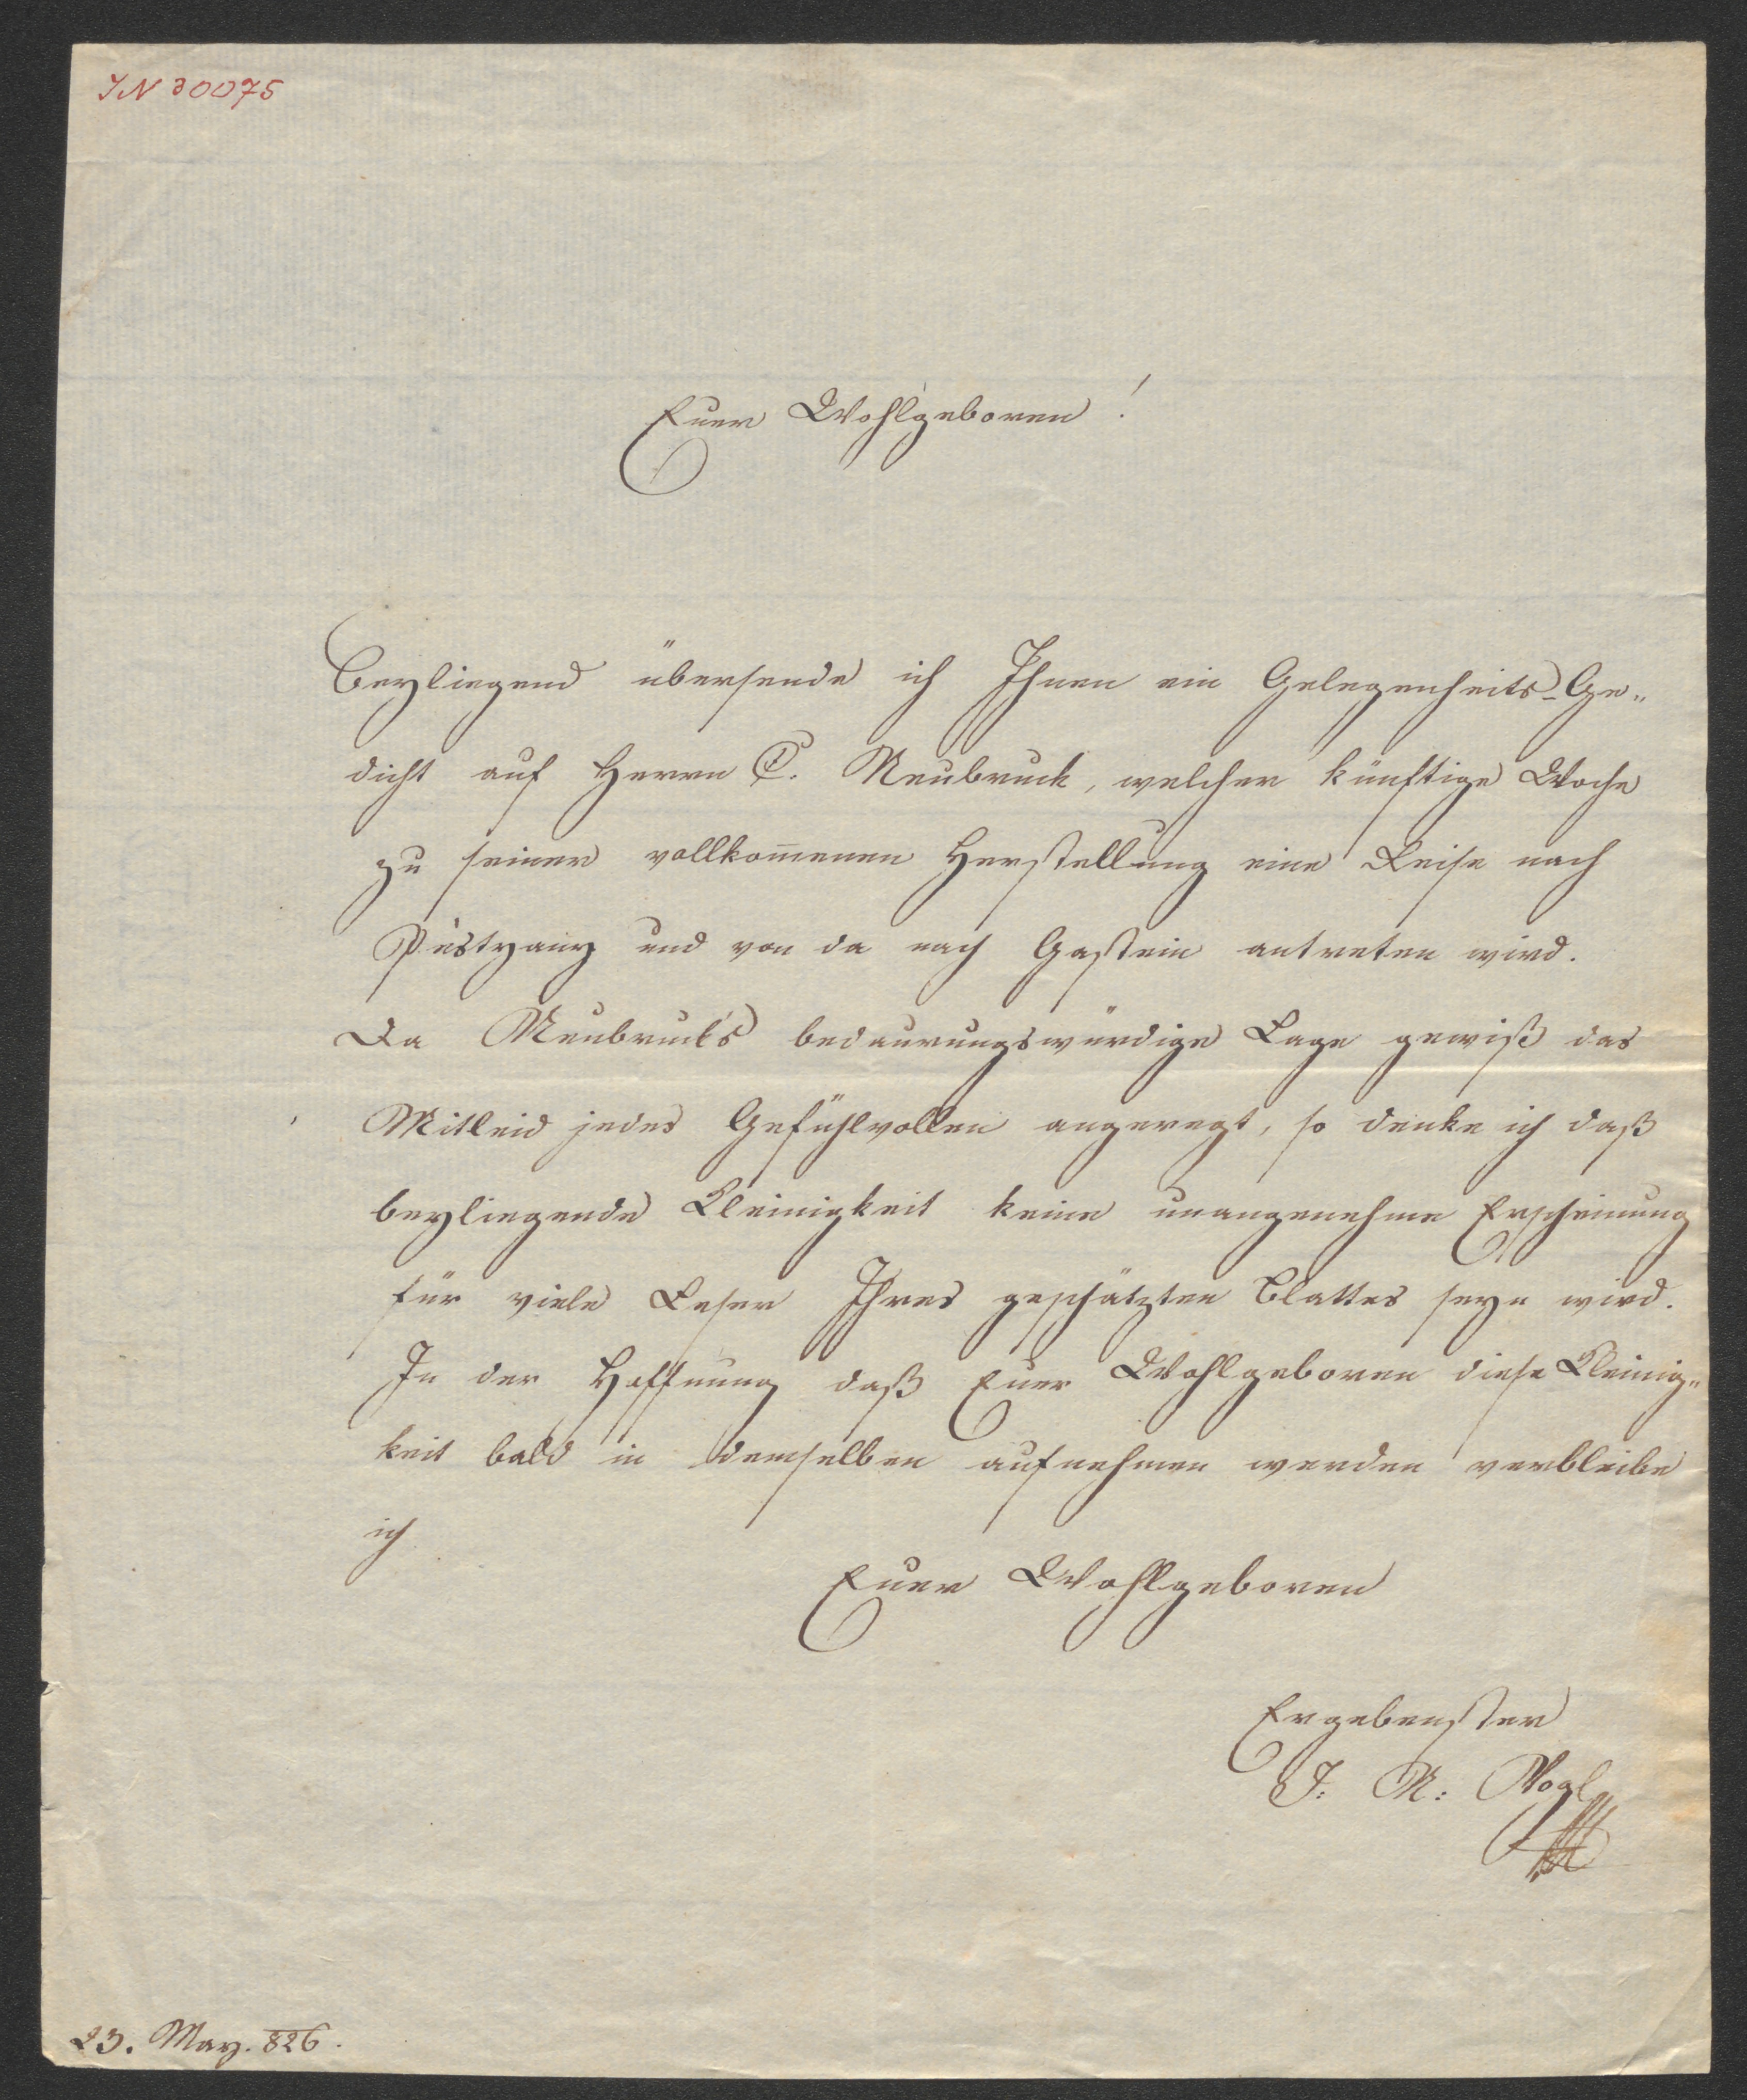 IN 30075
Euer Wohlgeboren!
Beyliegend übersende ich Ihnen ein Gelegenheits-Ge„
dicht auf Herrn C. Neubruck, welcher künftige Woche
zu seiner vollkom̅enen Herstellung eine Reise nach
Pistyany und von da nach Gastein antreten wird.
Da Neubruck's bedaurungswürdige Lage gewiß das
Mitleid jedes Gefühlvollen angeregt, so denke ich daß
beyliegende Kleinigkeit keine unangenehme Erscheinung
für viele Leser Ihres geschätzten Blattes seyn wird.
In der Hoffnung daß Euer Wohlgeboren diese Kleinig„
keit bald in demselben aufnehmen werden verbleibe
ich
Euer Wohlgeboren
Ergebenster
J. N: Vogl
23. May. 826.